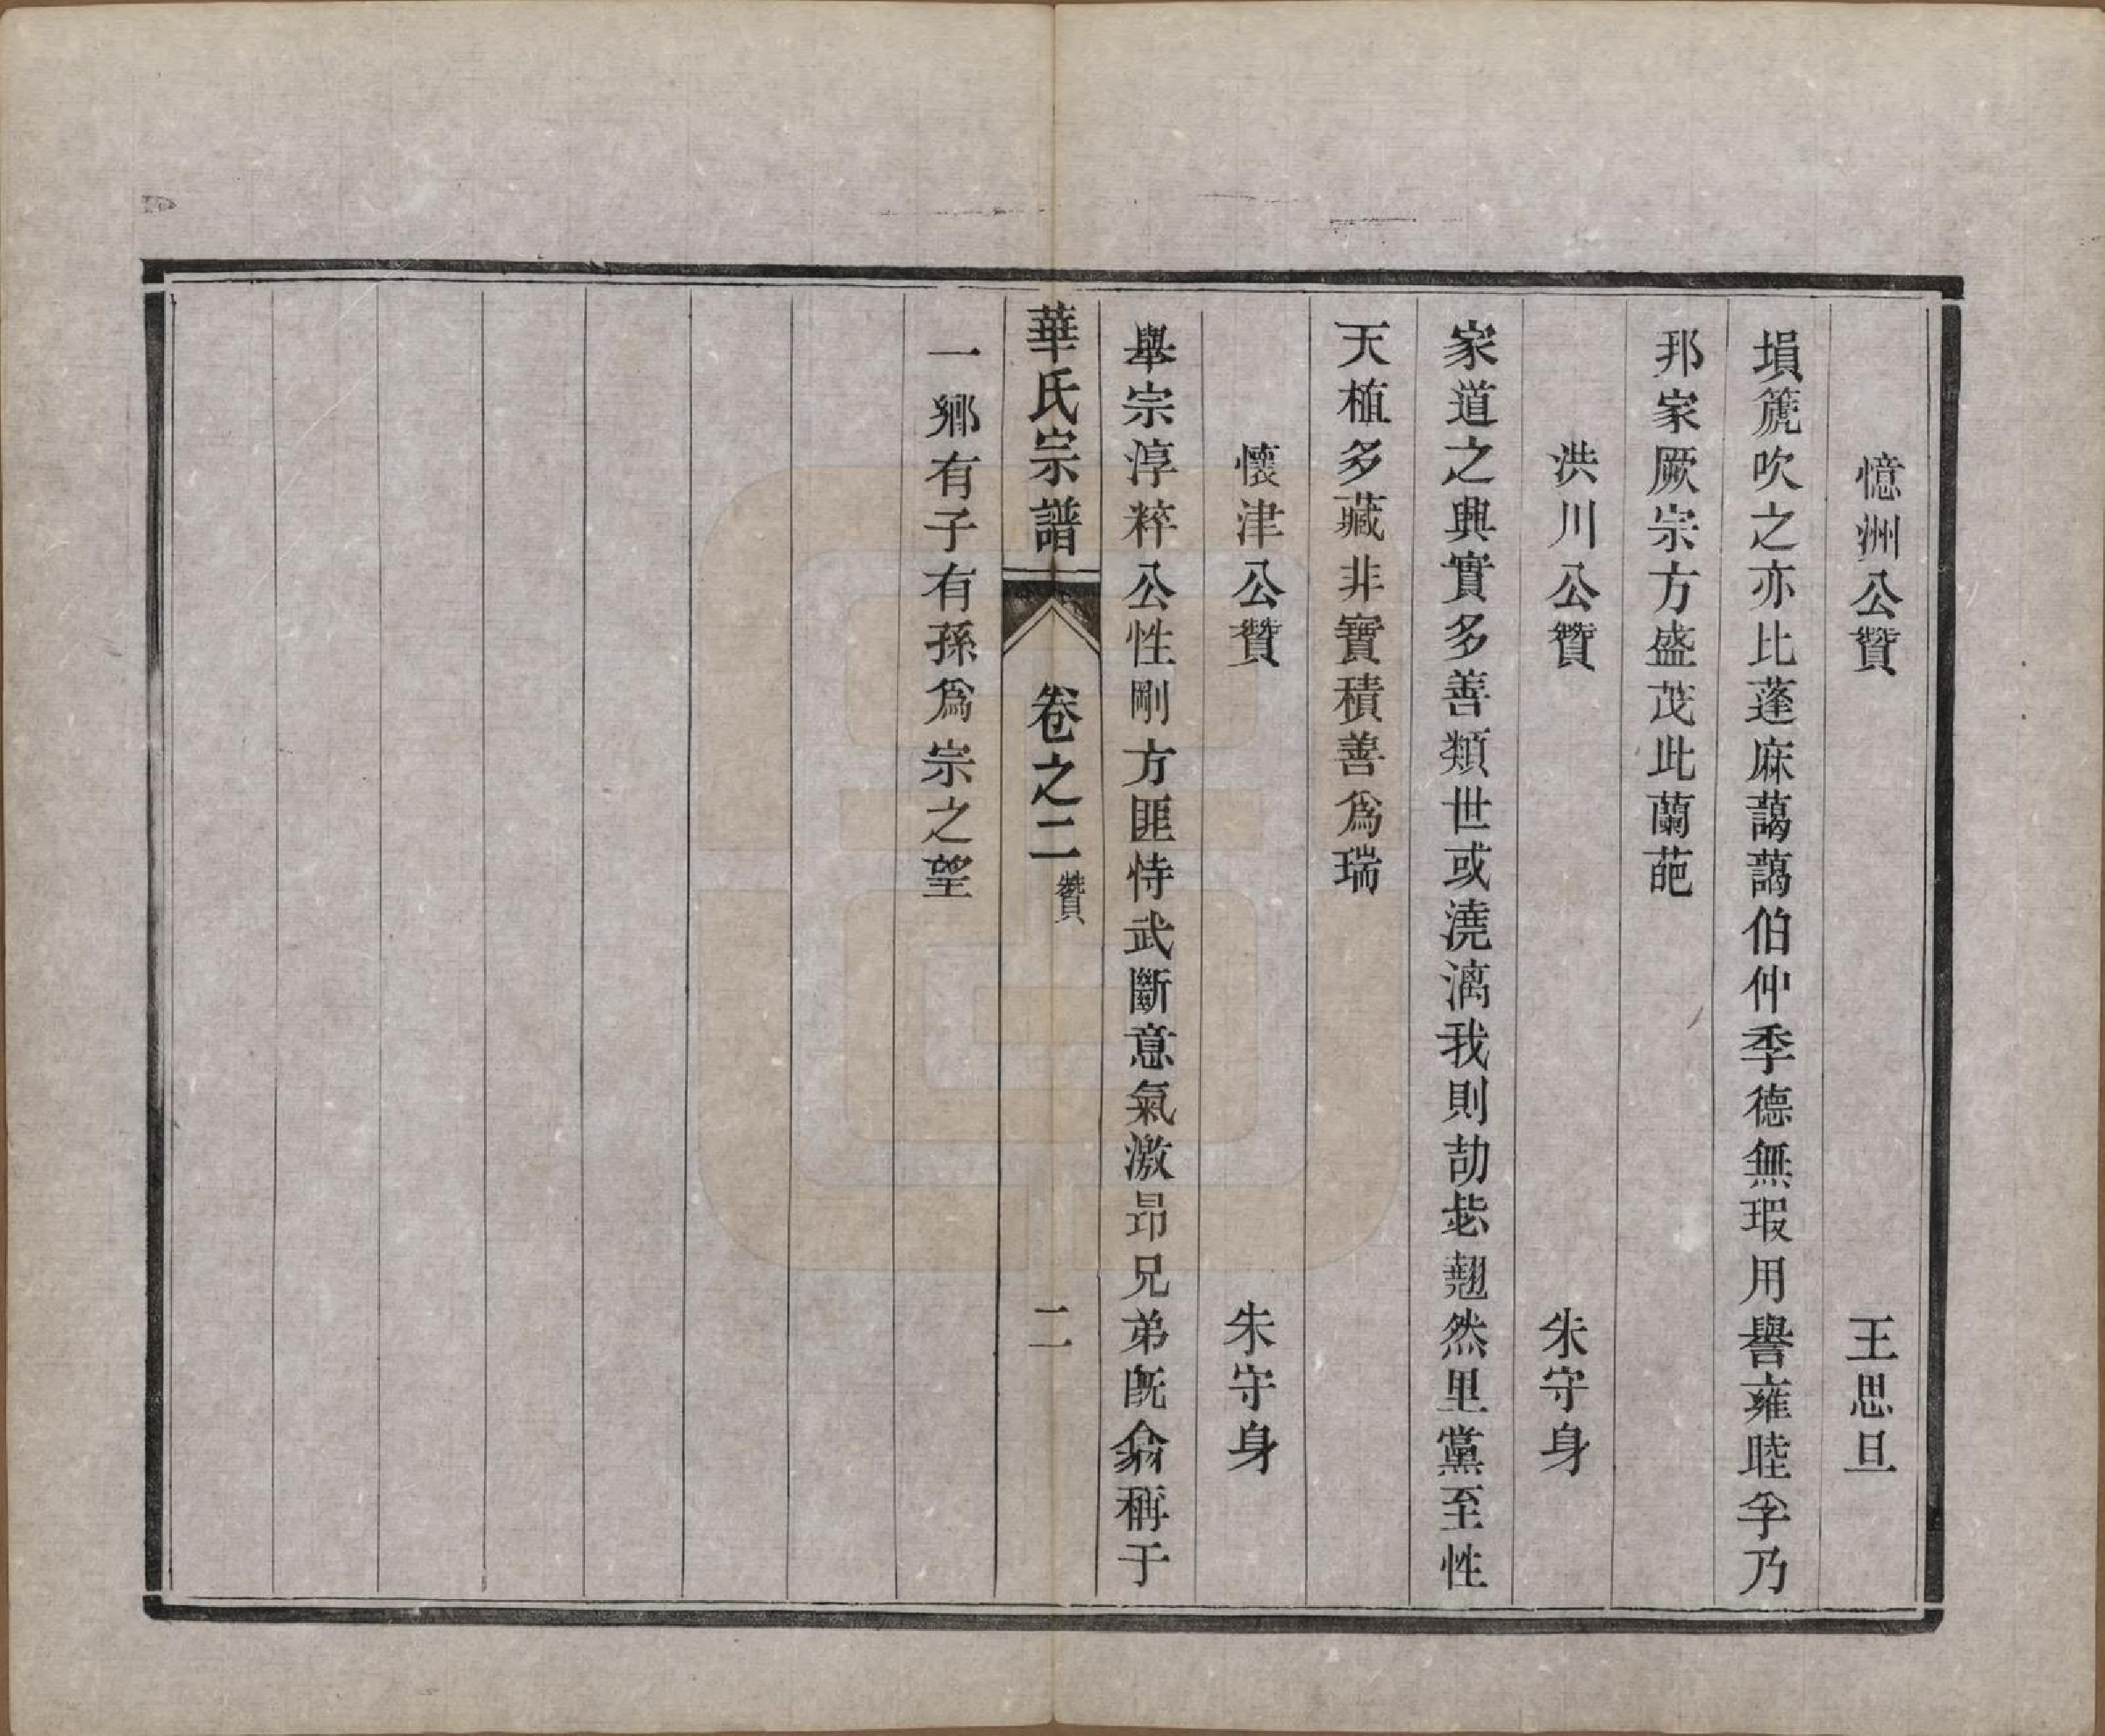 憶洲公贊　王思旦
塤篪吹之亦比蓬麻藹藹伯仲季德無瑕用譽雍睦孚乃
邦家厥宗方盛茂此蘭葩
洪川公贊　朱守身
家道之興實多善類世或澆漓我則劼毖翹然里黨至性
天植多藏非寶積善爲瑞
懷津公贊　朱守身
舉宗淳粹公性剛方匪恃武斷意氣激昂兄弟旣翕稱于
華氏宗譜　卷之二　贊　二
一鄉有子有孫爲宗之望